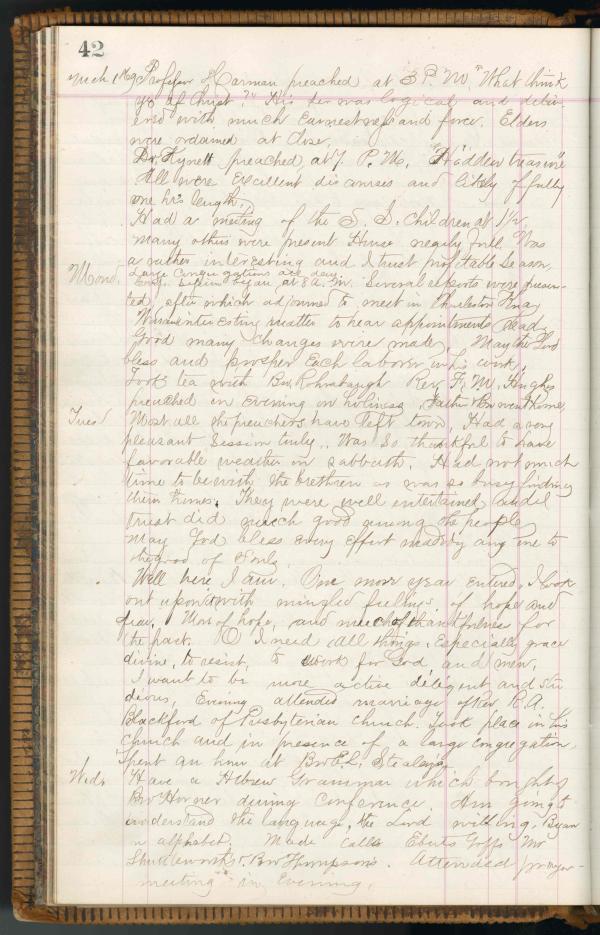 42
Professor Harman preached at 3 P.M. "What think
ye of Christ?" His ser was logical and deliv
ered with much earnestness and force. Elders
were ordained at close.
Dr. Kynett preached at 7 P.M. "Hidden treasure"
All were excellent discourses and likely fully
one hr's length.
Had a meeting of the S.S. children at 1 1/2
many others were present House nearly full. Was
a rather interesting and I trust profitable season.
Large congregations all day.
Mond. session began at 8 A.M. Several reports were presen-
ted, after which adjourned to meet in Charleston Kna
Was an interesting matter to hear appointments read
Good many changes were made. May the Lord
bless and prosper each laborer in his work.
Took tea with Bro. Rohrabaugh Rev. F. M. Hughes
preached in evening on holiness. went home.
Tues Most all the preachers have left town. Had a very
pleasant session truly. Was so thankful to have
favorable weather on sabbath. Had not much
time to be with the brethren as was so busy finding
them homes. They were well entertained and I
trust did much good among the people
May God bless every effort made by any one to
the good of souls.
Well here I am. One more year entered. I look
out upon it with mingled feelings of hope and
fear. More of hope, and much of thankfulness for
the past. O I need all things. Especially grace
divine, to resist, to work for God, and men.
I want to be more active diligent and stu
dious. Evening attended marriage of Rev. R. A.
Blackford of Presbyterian church. Took place in his
church and in presence of a large congregation.
Spent an hour at Bro E. L. Stealeys
Wed. Have a Hebrew Grammar which bought of
Bro Horner during Conference. Am going to
understand the language, the Lord willing. Began
n alphabet. Made calls Eberts Goffs Mr
Shuttleworths & Bro Thompsons. Attended prayer-
meeting in evening.